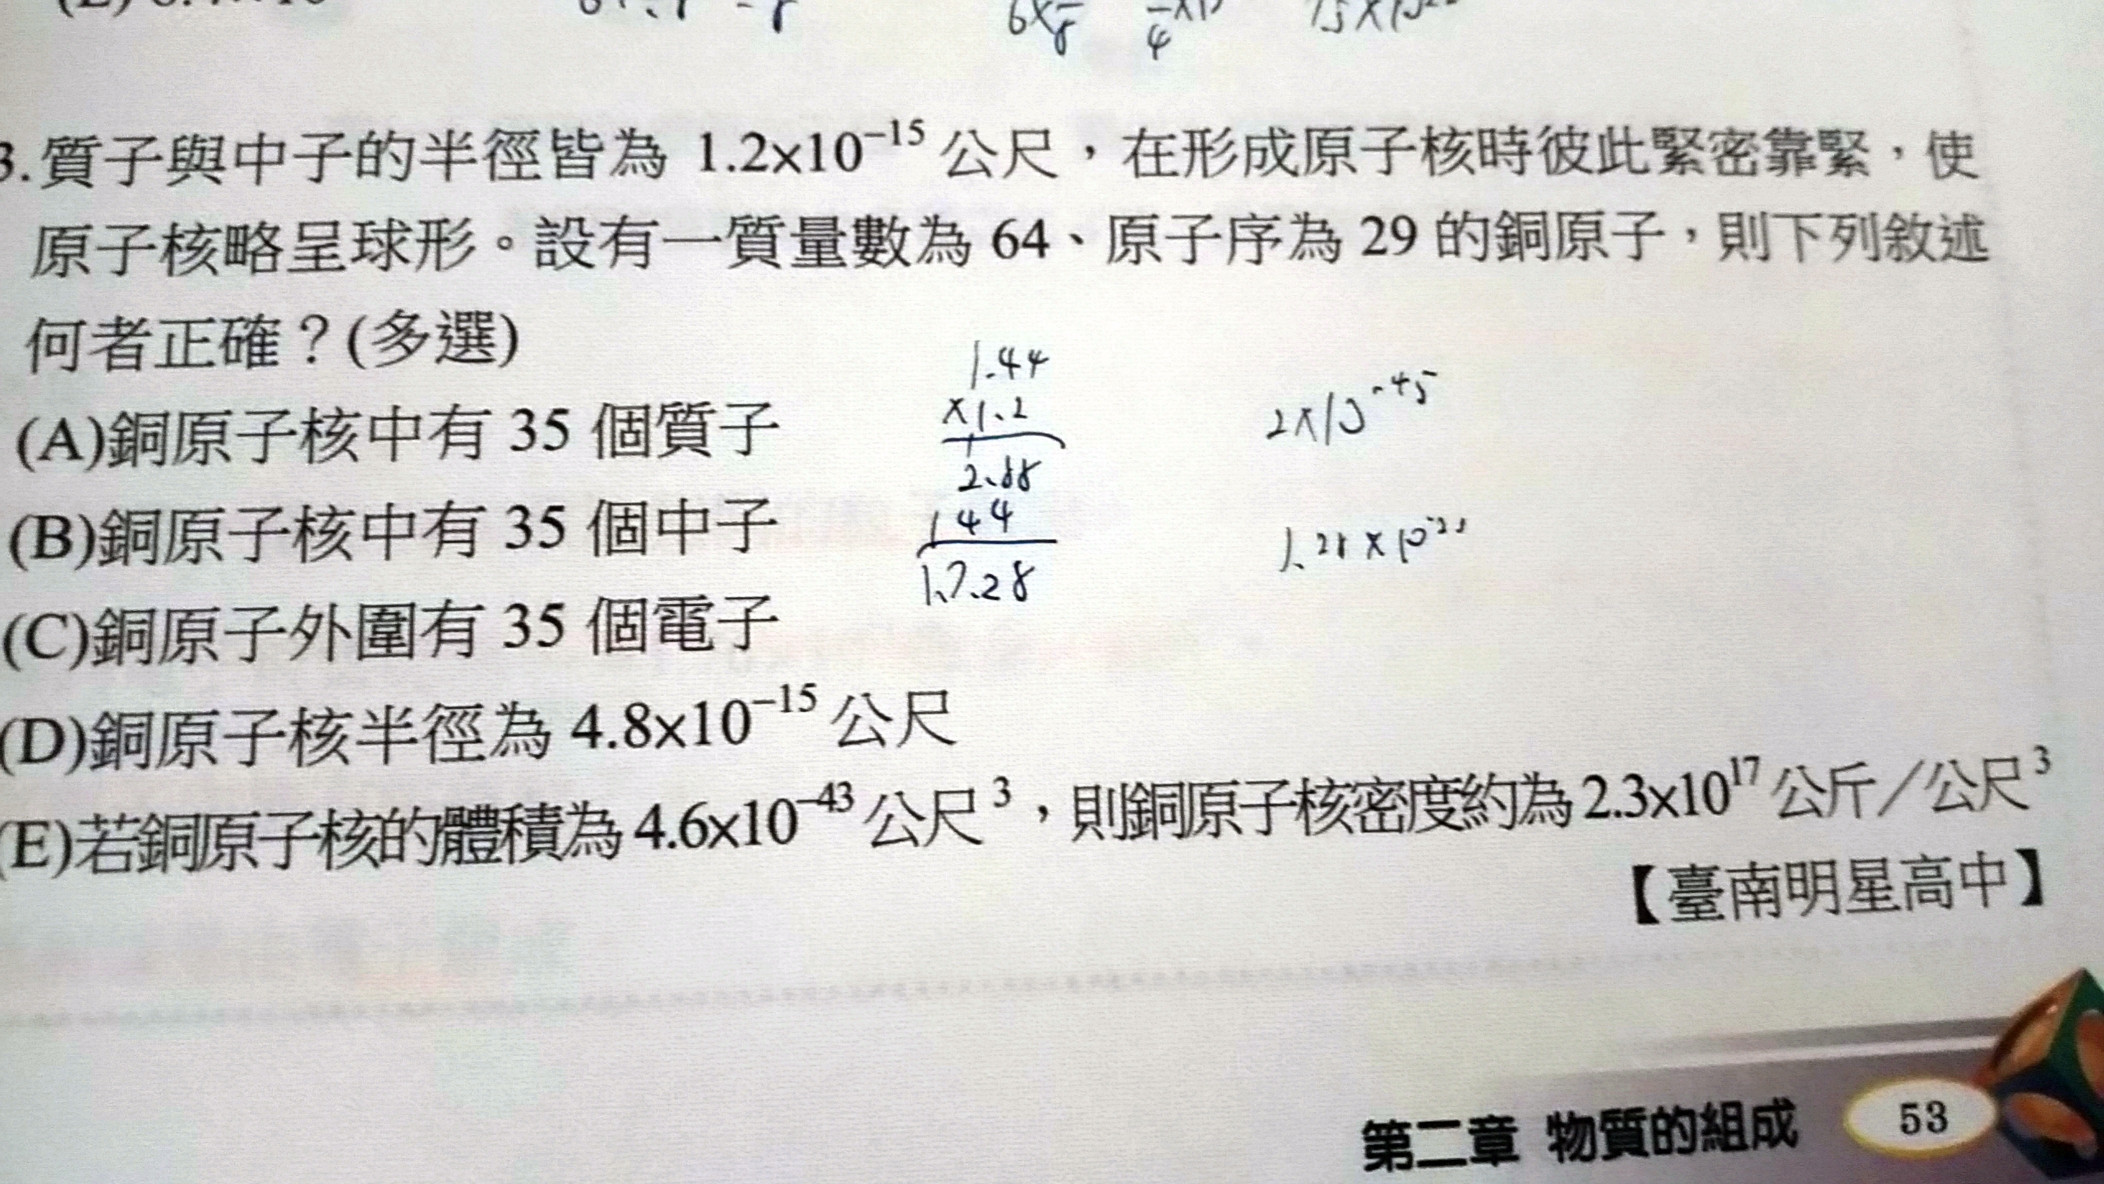 3.質子與中子的半徑皆為 1.2×10⁻¹⁵ 公尺，在形成原子核時彼此緊密靠緊，使
原子核略呈球形。設有一質量數為 64、原子序為 29 的銅原子，則下列敘述
何者正確？(多選)
1.44
×1.2
2.88
144
1.7.28
2×10⁻⁴⁵
(A)銅原子核中有 35 個質子
(B)銅原子核中有 35 個中子
(C)銅原子外圍有 35 個電子
(D)銅原子核半徑為 4.8×10⁻¹⁵ 公尺
(E)若銅原子核的體積為 4.6×10⁻⁴³ 公尺³，則銅原子核密度約為 2.3×10¹⁷ 公斤／公尺³
【臺南明星高中】
第二章 物質的組成 53